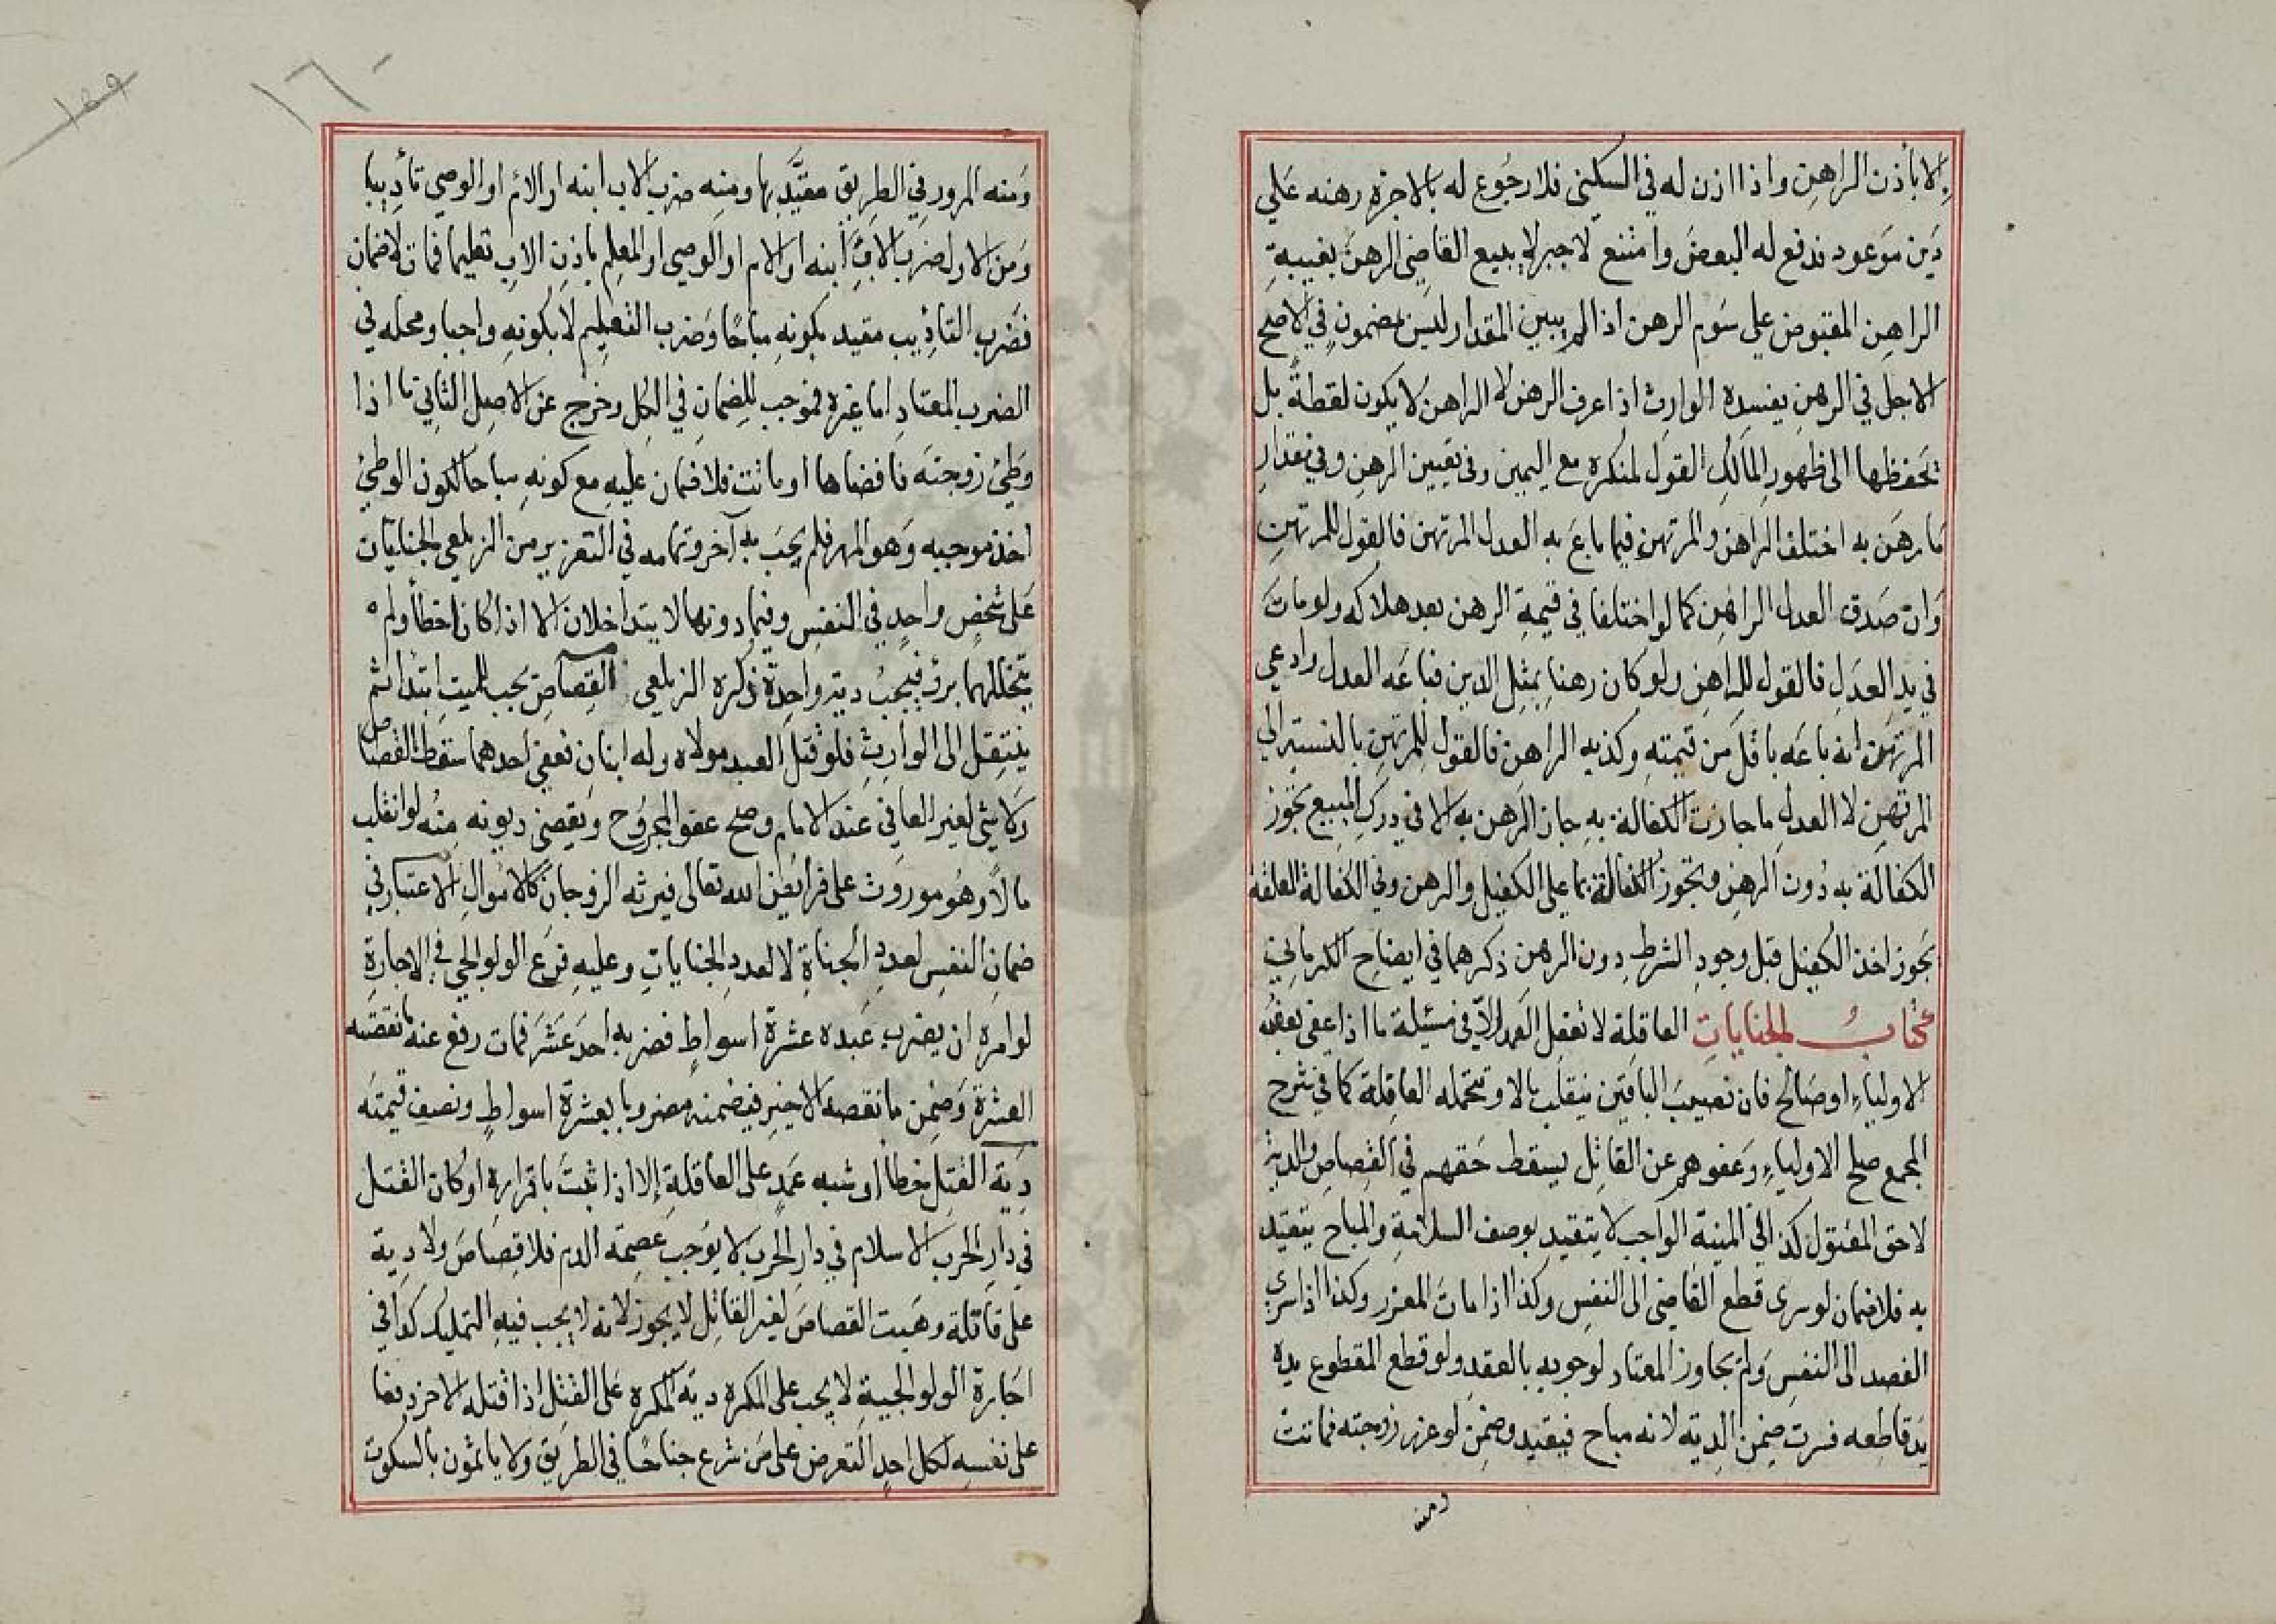 الا بأذن الراهن واذا اذن له في السكنى فلا رجوع له بالاجرة رهنه علي
دين موعود فدفع له البعض وامتنع لا جبر لا يبيع القاضي الرهن بغيبة
الراهن المقبوض على سوم الرهن اذا لم يبين المقدار ليس بمضمون في الاصح
الاجل في الرهن يفسده الوارث اذا عرف الرهن لا الراهن لا يكون لقطة بل
تحفظها الى ظهور المالك القول لمنكره مع اليمين وفى تعيين الرهن وفي مقدار
ما رهن به اختلف الراهن والمرتهن فيما باع به العدل المرتهن فالقول للمرتهن
وان صدق العدل الراهن كما لو اختلفا في قيمة الرهن بعد هلاكه ولو مات
في يد العدل فالقول للراهن ولو كان رهنا بمثل الدين فباعه العدل وادعي
المرتهن انه باعه باقل من قيمته وكذبه الراهن فالقول للمرتهن بالنسبة الي
المرتهن لا العدل ما جازت الكفالة به جاز الرهن به الا في درك المبيع تجوز
الكفالة به دون الرهن وتجوز الكفالة بما على الكفيل والرهن وفي الكفالة المعلقة
يجوز اخذ الكفيل قبل وجود الشرط دون الرهن ذكرهما في ايضاح الكرماني
كتاب الجنايات العاقلة لا تعقل العمد الا في مسئلة ما اذا عفى بعض
الاولياء او صالح فان نصيب الباقين ينقلب مالا وتتحمله العاقلة كما في شرح
المجمع صلح الاولياء وعفوهم عن القاتل يسقط حقهم في القصاص والدية
لا حق المقتول كذا في المنية الواجب لا يتقيد بوصف السلامة والمباح يتقيد
به فلا ضمان لو سرى قطع القاضي الى النفس وكذا اذا مات المعزر وكذا اذا سري
الفصد الى النفس ولم يجاوز المعتاد لوجوبه بالعقد ولو قطع المقطوع يده
يد قاطعه فسرت ضمن الدية لانه مباح فيتقيد وضمن لو عزر زوجته فماتت
ومنه
١٦٠
١٥٩
ومنه المرور في الطريق مقيد بها ومنه ضرب الاب ابنه او الام او الوصي تأديبا
ومن الاول ضرب الاب ابنه او الام او الوصي او المعلم باذن الاب تعليما فمات لا ضمان
فضرب التاديب مقيد بكونه مباحا وضرب التعليم لا بكونه واجبا ومحله في
الضرب المعتاد اما غيره فموجب للضمان في الكل وخرج عن الاصل الثاني ما اذا
وطئ زوجته فافضاها او ماتت فلا ضمان عليه مع كونه مباحا لكون الوطئ
اخذ موجبه وهو المهر فلم يجب به آخر وتمامه في التعزير من الزيلعي الجنايتان
على شخص واحد في النفس وفيما دونها لا يتداخلان الا اذا كان خطأ ولم
يتخللهما برؤ فيجب دية واحدة ذكره الزيلعى القصاص يجب للميت ابتدا ثم
ينتقل الى الوارث فلو قتل العبد مولاه وله ابنان فعفى احدهما سقط القصاص
ولا شئ لغير العافي عند الامام وصح عفو المجروح وتقضى ديونه منه لو انقلب
مالا وهو موروث على فرائض الله تعالى فيرثه الزوجان كالاموال الاعتبار في
ضمان النفس لعدد الجناة لا لعدد الجنايات وعليه فرع الولوالجي في الاجارة
لو امره ان يضرب عبده عشرة اسواط فضربه احد عشر فمات رفع عنه ما نقصته
العشرة وضمن ما نقصه الاخير فيضمنه مضروبا بعشرة اسواط ونصف قيمته
دية القتل خطأ او شبه عمد على العاقلة إلا اذا ثبت باقراره او كان القتل
في دار الحرب الاسلام في دار الحرب لا يوجب عصمة الدم فلا قصاص ولا دية
على قاتله وهبت القصاص لغير القاتل لا يجوز لانه لا يجب فيه التمليك كذا في
اجارة الولوالجية لا يجب على المكره دية المكره على القتل اذا قتله الاخر دفعا
على نفسه لكل احد التعرض على من شرع جناحا في الطريق ولا ياثمون بالسكوت